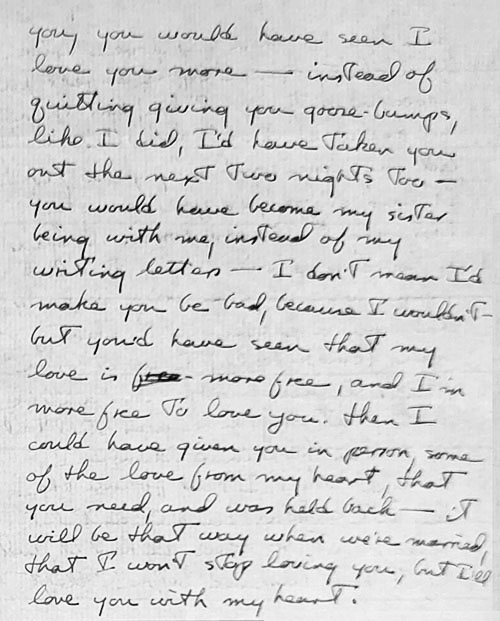 you, you would have seen I
love you more — instead of
quitting giving you goose-bumps,
like I did, I'd have taken you
out the next two nights too —
you would have become my sister
being with me, instead of my
writing letters — I don't mean I'd
make you be bad, because I wouldn't -
but you'd have seen that my
love is free more free, and I'm
more free to love you. then I
could have given you in person, some
of the love from my heart, that
you need, and was held back — it
will be that way when we're married,
that I won't stop loving you, but I'll
love you with my heart.